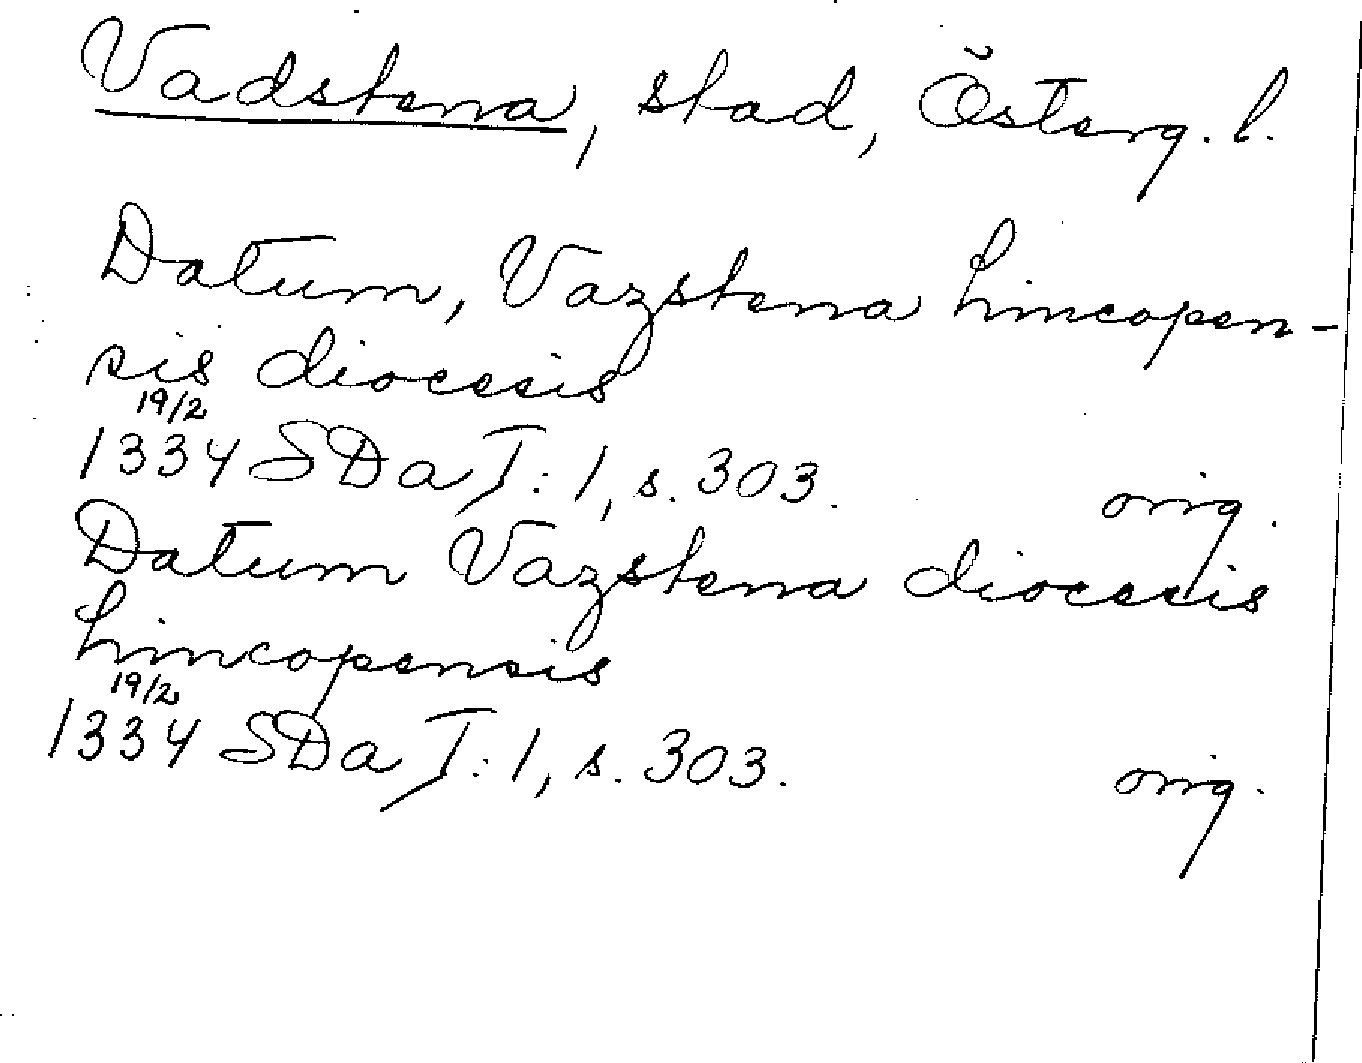 Vadstena, stad, Österg. l.
Datum, Vazstena Lincopen-
sis diocesis
19/2
1334 SDa I:1, s. 303. orig.
Datum Vazstena diocesis
Lincopensis
19/2
1334 SDa I:1, s. 303. orig.